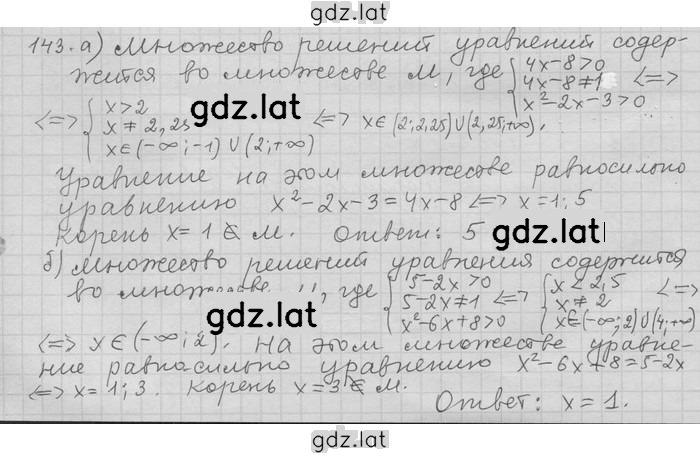 gdz.lat
143. а) Множество решений уравнений содер-
жится во множестве М, где { 4x-8>0
4x-8≠1 <=>
x²-2x-3>0
gdz.lat
<=> { x>2
x≠2,25 <=> x∈(2;2,25)∪(2,25;+∞).
x∈(-∞;-1)∪(2;+∞)
Уравнение на этом множестве равносильно
уравнению x²-2x-3=4x-8 <=> x=1;5
Корень x=1 ∉ М. Ответ: 5
gdz.lat
б) Множество решений уравнения содержится
во где { 5-2x>0
5-2x≠1 <=>
x²-6x+8>0
{ x<2,5
x≠2 <=>
x∈(-∞;2)∪(4;+∞)
gdz.lat
<=> x∈(-∞;2). На этом множестве уравне-
ние равносильно уравнению x²-6x+8=5-2x
<=> x=1;3. Корень x=3 ∉ М.
gdz.lat
Ответ: x=1.
gdz.lat